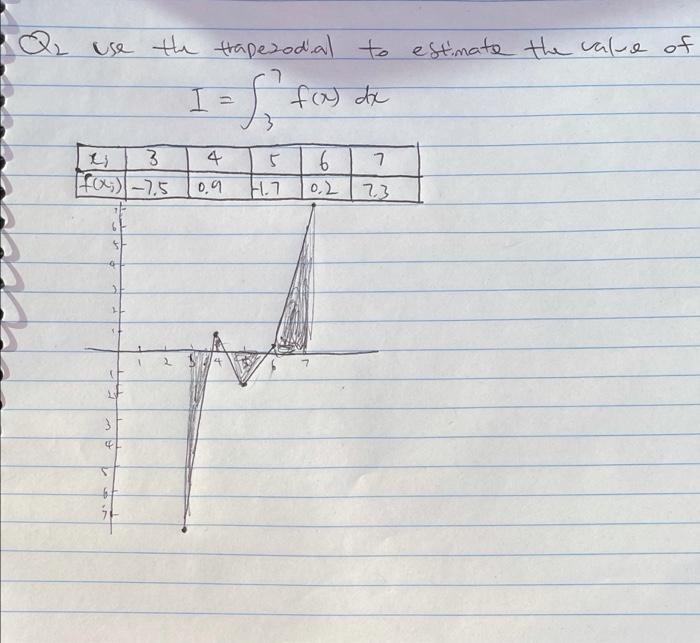 Q2 use the trapezodial to estimate the value of
I = ∫₃⁷ f(x) dx
xj 3 4 5 6 7
f(xj) -7.5 0.9 -1.7 0.2 7.3
7
6
5
4
3
2
1
1 2 3 4 5 6 7
1
2
3
4
5
6
7